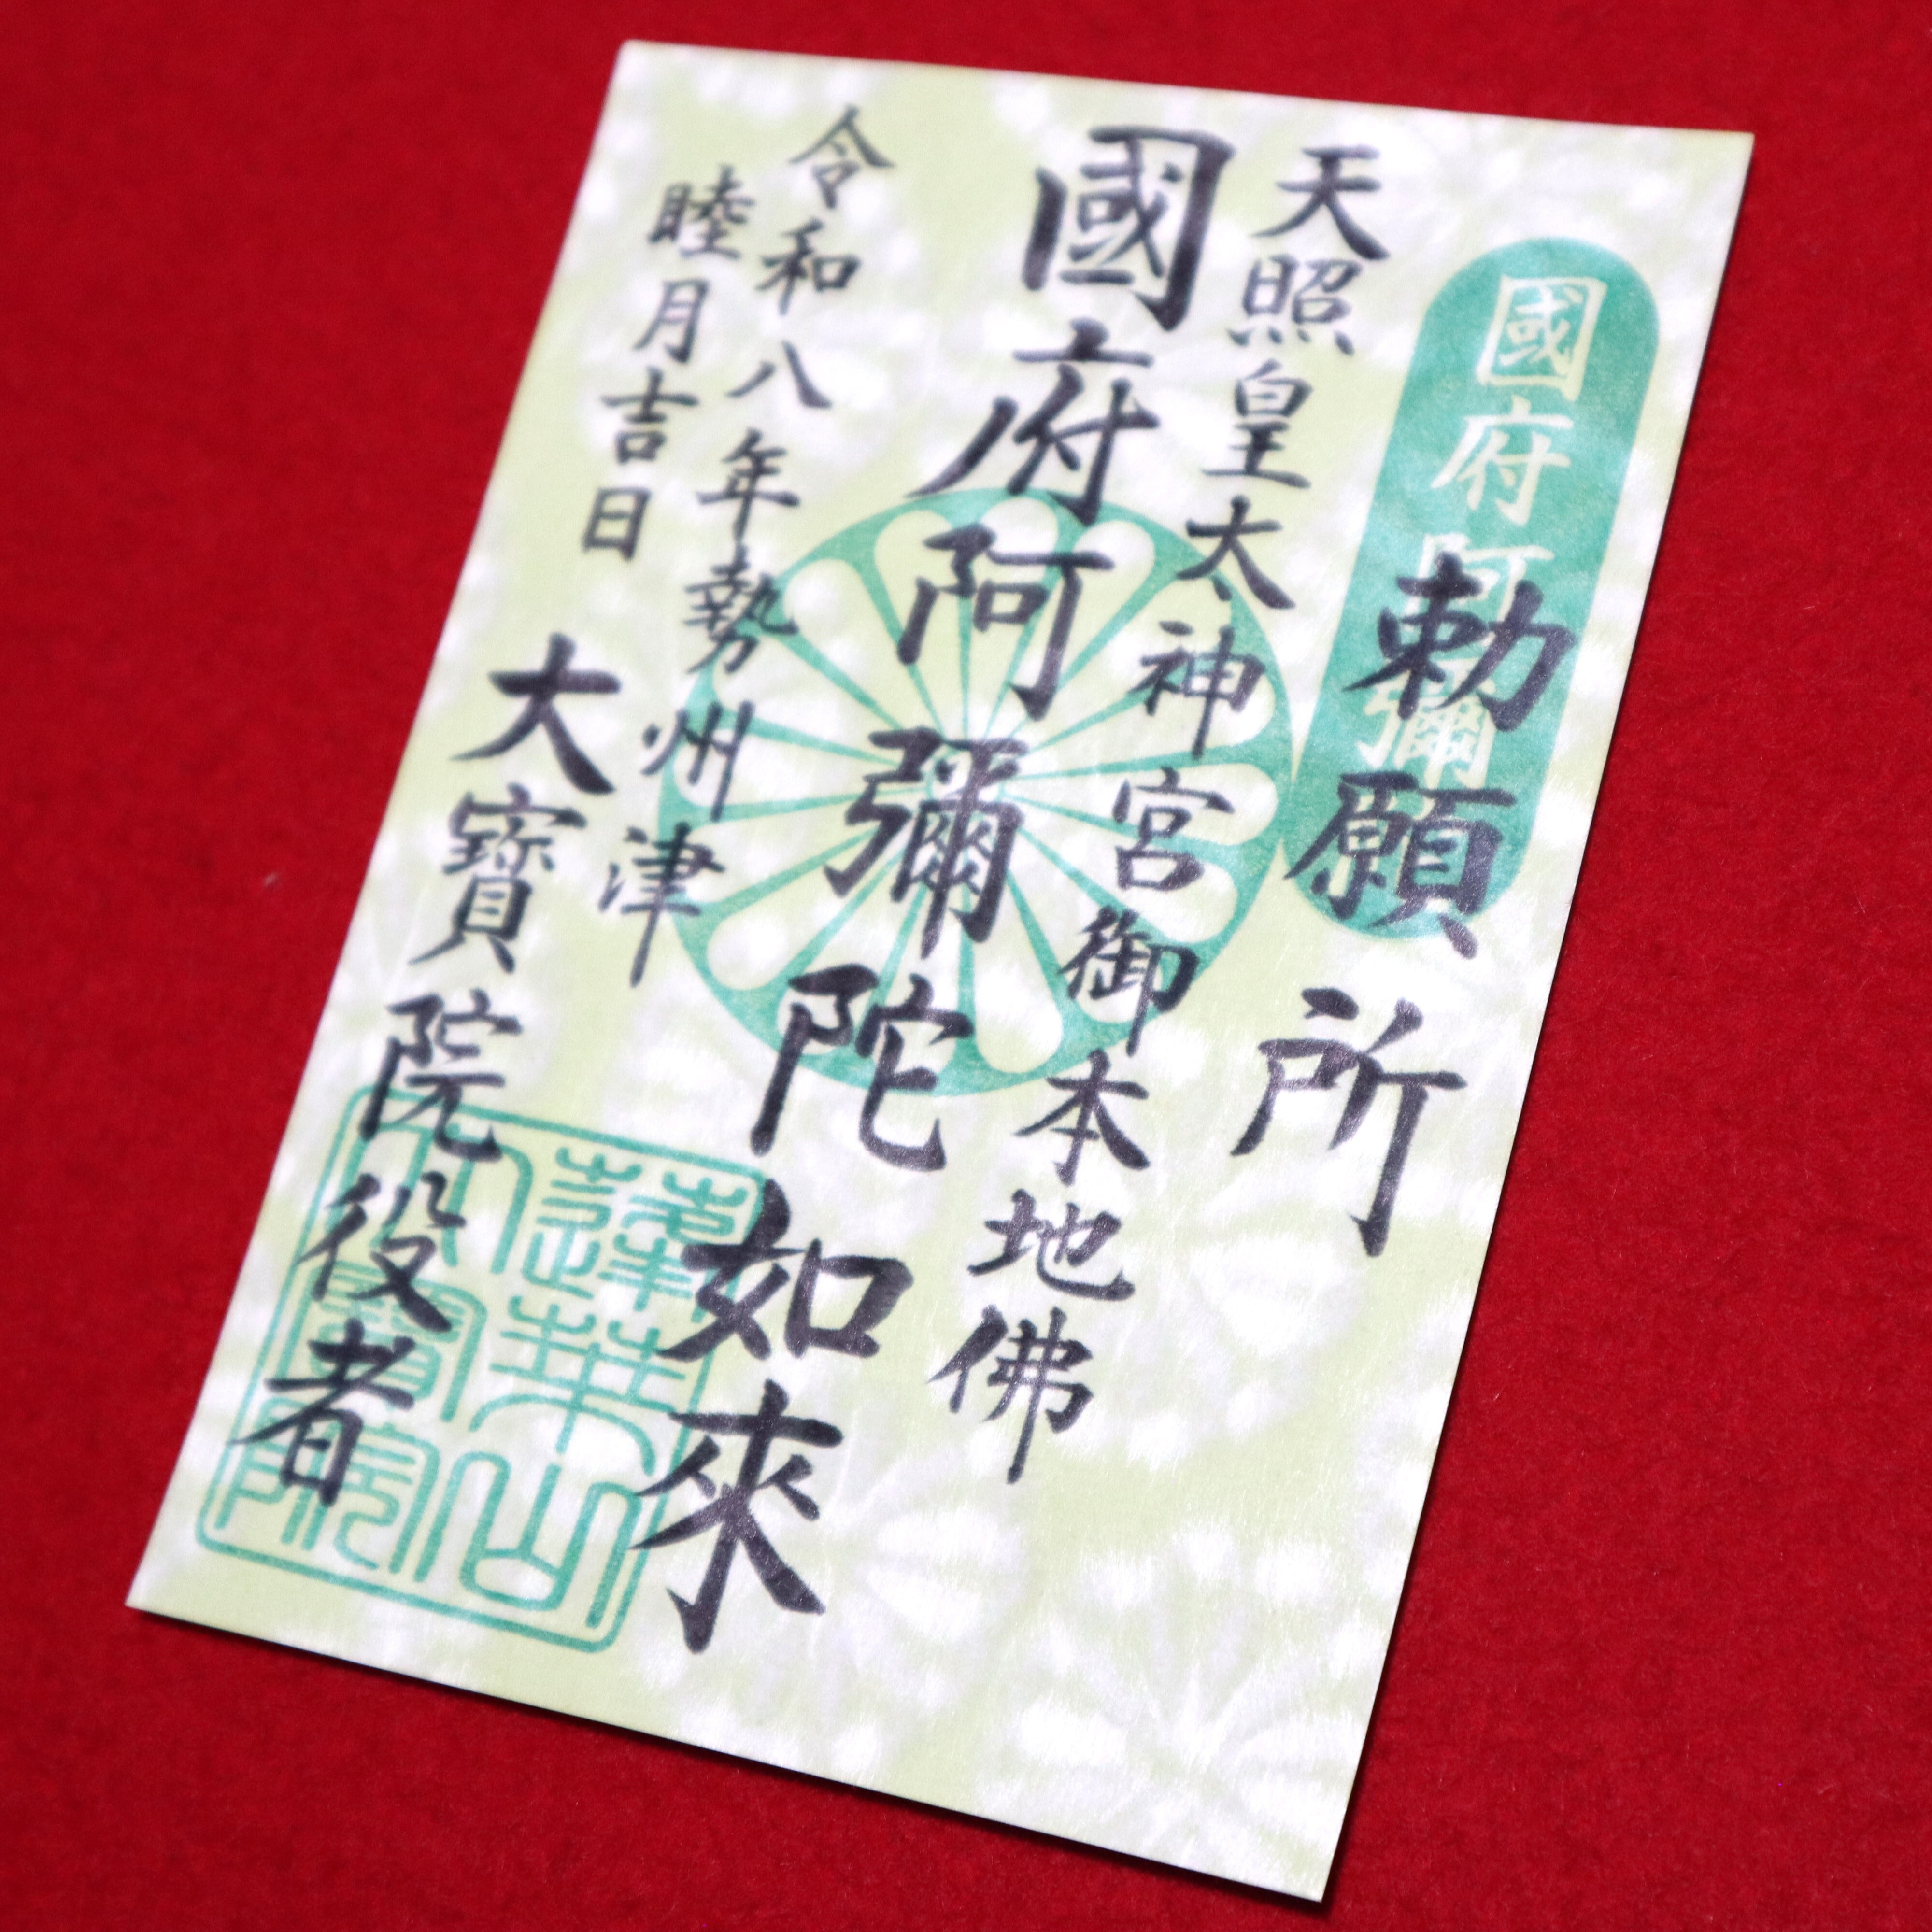 國府阿彌
勅願所
天照皇大神宮御本地佛
國府阿彌陀如來
令和八年勢州津
睦月吉日
大寶院役者
蓮華山
大寶院